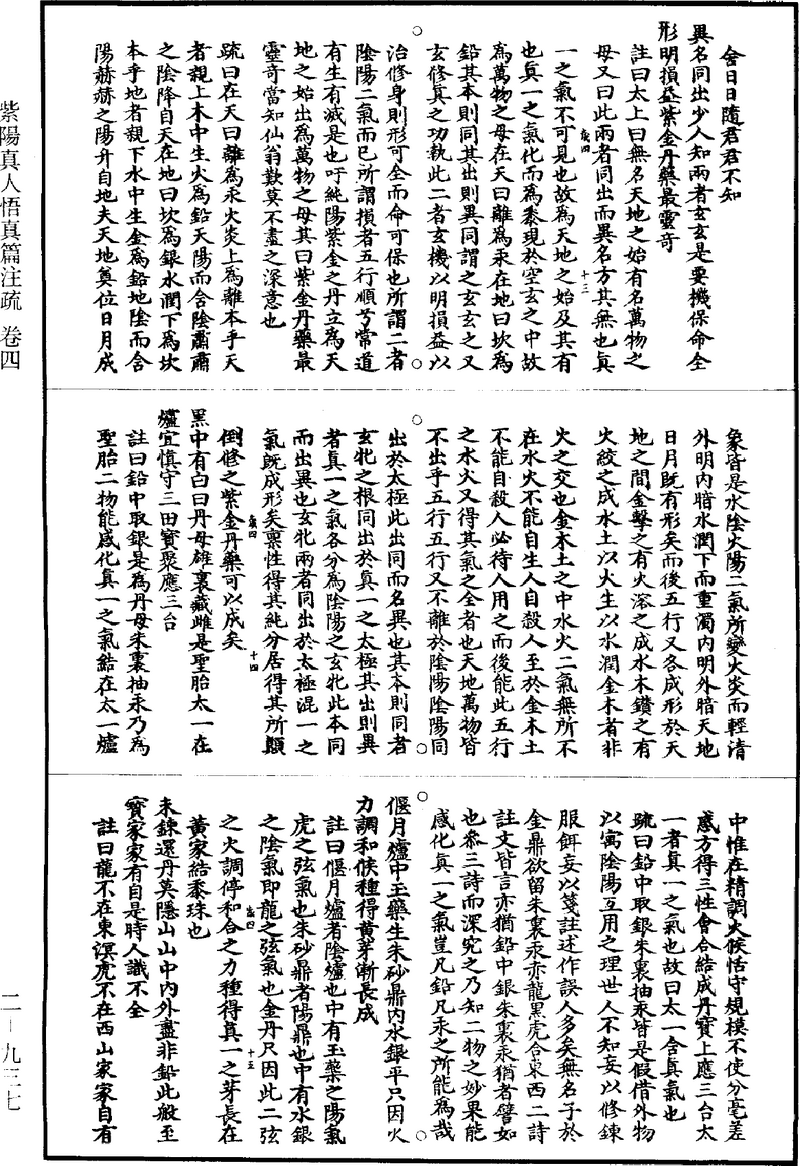 紫陽真人悟真篇注疏 卷四
二—九三七
舍日日隨君君不知
異名同出少人知兩者玄玄是要機保命全
形明損益紫金丹藥最靈奇
註曰太上曰無名天地之始有名萬物之
母又曰此兩者同出而異名方其無也真
一之氣不可見也故為天地之始及其有
也真一之氣化而為黍現於空玄之中故
為萬物之母在天曰離為汞在地曰坎為
鉛其本則同其出則異同謂之玄玄之又
玄修真之功執此二者玄機以明損益以
治修身則形可全而命可保也所謂二者
陰陽二氣而已所謂損者五行順兮常道
有生有滅是也吁純陽紫金之丹立為天
地之始出為萬物之母其曰紫金丹藥最
靈奇當知仙翁歎莫不盡之深意也
疏曰在天曰離為汞火炎上為離本乎天
者親上木中生火為鉛天陽而含陰肅肅
之陰降自天在地曰坎為銀水潤下為坎
本乎地者親下水中生金為鉛地陰而含
陽赫赫之陽升自地夫天地奠位日月成
象皆是水陰火陽二氣所變火炎而輕清
外明內暗水潤下而重濁內明外暗天地
日月既有形矣而後五行又各成形於天
地之間金擊之有火溶之成水木鑽之有
火絞之成水土以火生以水潤金木者非
火之交也金木土之中水火二氣無所不
在水火不能自生人自殺人至於金木土
不能自殺人必待人用之而後能此五行
之水火又得其氣之全者也天地萬物皆
不出乎五行五行又不離於陰陽陰陽同
出於太極此出同而名異也其本則同者
玄牝之根同出於真一之太極其出則異
者真一之氣各分為陰陽之玄牝此本同
而出異也玄牝兩者同出於太極混一之
氣既成形矣稟性得其純分居得其所顛
倒修之紫金丹藥可以成矣
黑中有白曰丹母雄裏藏雌是聖胎太一在
爐宜慎守三田寶聚應三台
註曰鉛中取銀是為丹母朱裏抽汞乃為
聖胎二物能感化真一之氣結在太一爐
中惟在精調火候恬守規模不使分毫差
惑方得三性會合結成丹寶上應三台太
一者真一之氣也故曰太一含真氣也
疏曰鉛中取銀朱裏抽汞皆是假借外物
以寓陰陽互用之理世人不知妄以修鍊
服餌妄以箋註述作誤人多矣無名子於
金鼎欲留朱裏汞亦龍黑虎合東西二詩
註文皆言亦猶鉛中銀朱裏汞猶者譬如
也叅三詩而深究之乃知二物之妙果能
感化真一之氣豈凡鉛凡汞之所能為哉
偃月爐中玉藥生朱砂鼎內水銀平只因火
力調和候種得黃芽漸長成
註曰偃月爐者陰爐也中有玉藥之陽氣
虎之弦氣也朱砂鼎者陽鼎也中有水銀
之陰氣即龍之弦氣也金丹只因此二弦
之火調停和合之力種得真一之芽長在
黃家結黍珠也
未鍊還丹莫隱山山中內外盡非鉛此般至
寶家家有自是時人識不全
註曰龍不在東溟虎不在西山家家自有